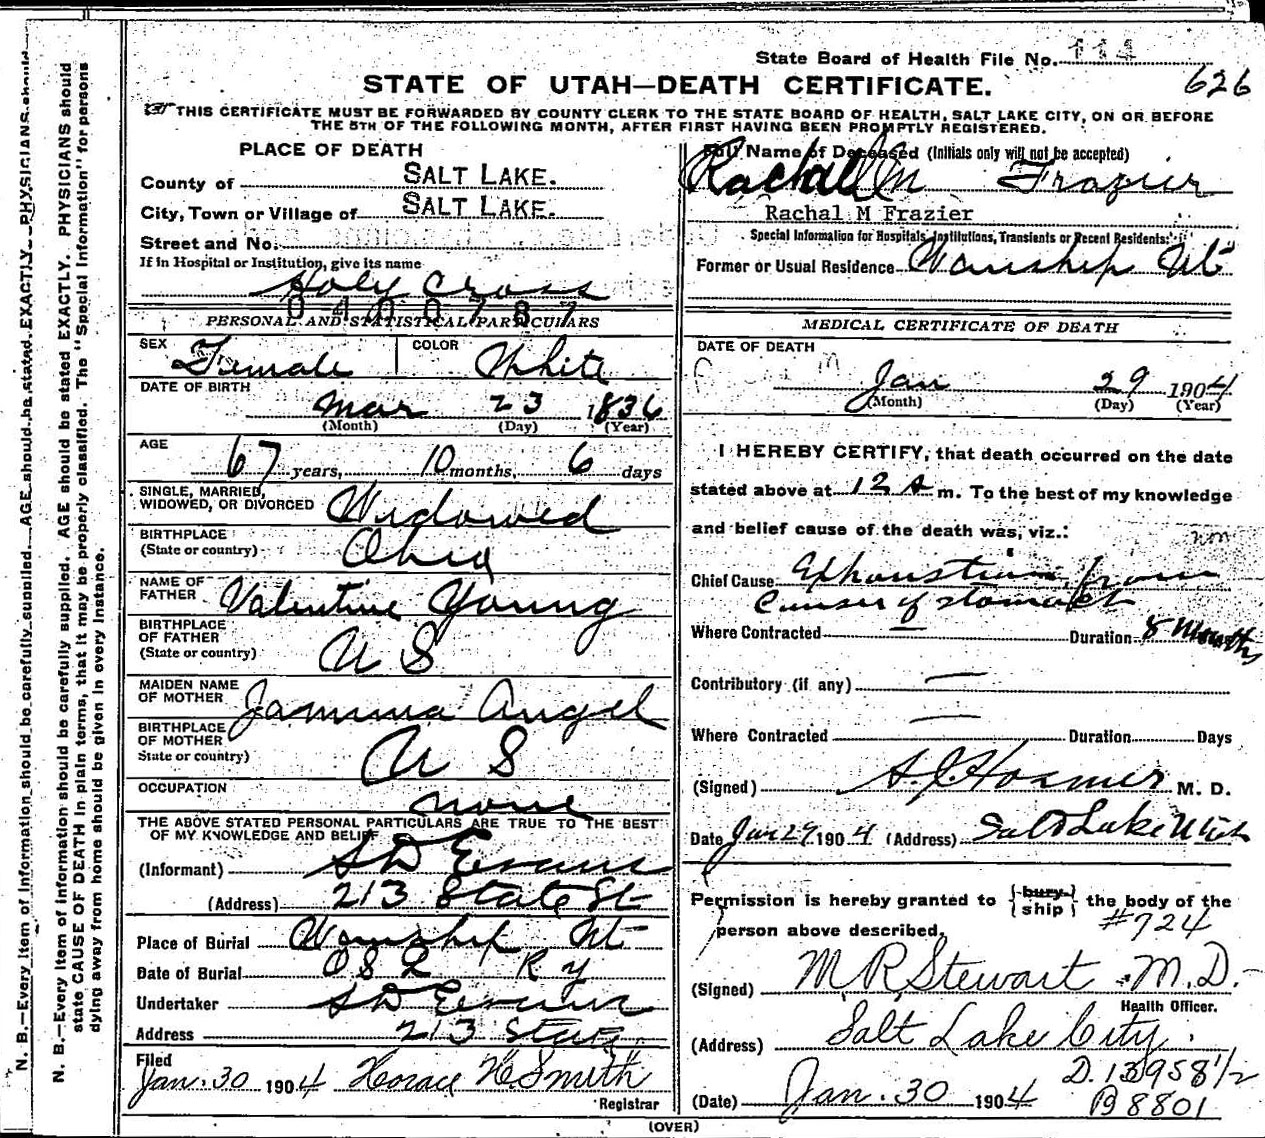 N. B.—Every item of information should be carefully supplied. AGE should be stated EXACTLY. PHYSICIANS should
N. B.—Every item of information should be carefully supplied. AGE should be stated EXACTLY. PHYSICIANS should
state CAUSE OF DEATH in plain terms, that it may be properly classified. The "Special Information" for persons
dying away from home should be given in every instance.
State Board of Health File No. 114
626
STATE OF UTAH—DEATH CERTIFICATE.
THIS CERTIFICATE MUST BE FORWARDED BY COUNTY CLERK TO THE STATE BOARD OF HEALTH, SALT LAKE CITY, ON OR BEFORE
THE 5TH OF THE FOLLOWING MONTH, AFTER FIRST HAVING BEEN PROMPTLY REGISTERED.
PLACE OF DEATH
County of SALT LAKE.
City, Town or Village of SALT LAKE.
Street and No.
If in Hospital or Institution, give its name
Holy Cross
0400787
PERSONAL AND STATISTICAL PARTICULARS
SEX Female COLOR White
DATE OF BIRTH
Mar 23 1836
(Month) (Day) (Year)
AGE
67 years, 10 months, 6 days
SINGLE, MARRIED,
WIDOWED, OR DIVORCED Widowed
BIRTHPLACE
(State or country) Ohio
NAME OF
FATHER Valentine Young
BIRTHPLACE
OF FATHER
(State or country) U S
MAIDEN NAME
OF MOTHER Jamima Angel
BIRTHPLACE
OF MOTHER
State or country) U S
OCCUPATION
none
THE ABOVE STATED PERSONAL PARTICULARS ARE TRUE TO THE BEST
OF MY KNOWLEDGE AND BELIEF
(Informant) S D Evans
(Address) 213 State St
Place of Burial Wanship Ut
Date of Burial O S L Ry
Undertaker S D Evans
Address 213 State
Filed
Jan. 30 1904 Horace H Smith
Registrar
Full Name of Deceased (Initials only will not be accepted)
Rachal M Frazier
Rachal M Frazier
Special Information for Hospitals, Institutions, Transients or Recent Residents:
Former or Usual Residence Wanship Ut
MEDICAL CERTIFICATE OF DEATH
DATE OF DEATH
Jan 29 1904
(Month) (Day) (Year)
I HEREBY CERTIFY, that death occurred on the date
stated above at 12 A m. To the best of my knowledge
and belief cause of the death was, viz.:
Chief Cause Exhaustion from
Canser of stomach
Where Contracted — Duration 8 Months
Contributory (if any) —
Where Contracted — Duration Days
(Signed) Hosmer M. D.
Date Jan 29 1904 (Address) Salt Lake Utah
Permission is hereby granted to {bury / ship} the body of the
person above described. #724
(Signed) M R Stewart M.D.
Health Officer.
(Address) Salt Lake City.
D. 13958 1/2
(Date) Jan. 30 1904 B 8801
(OVER)